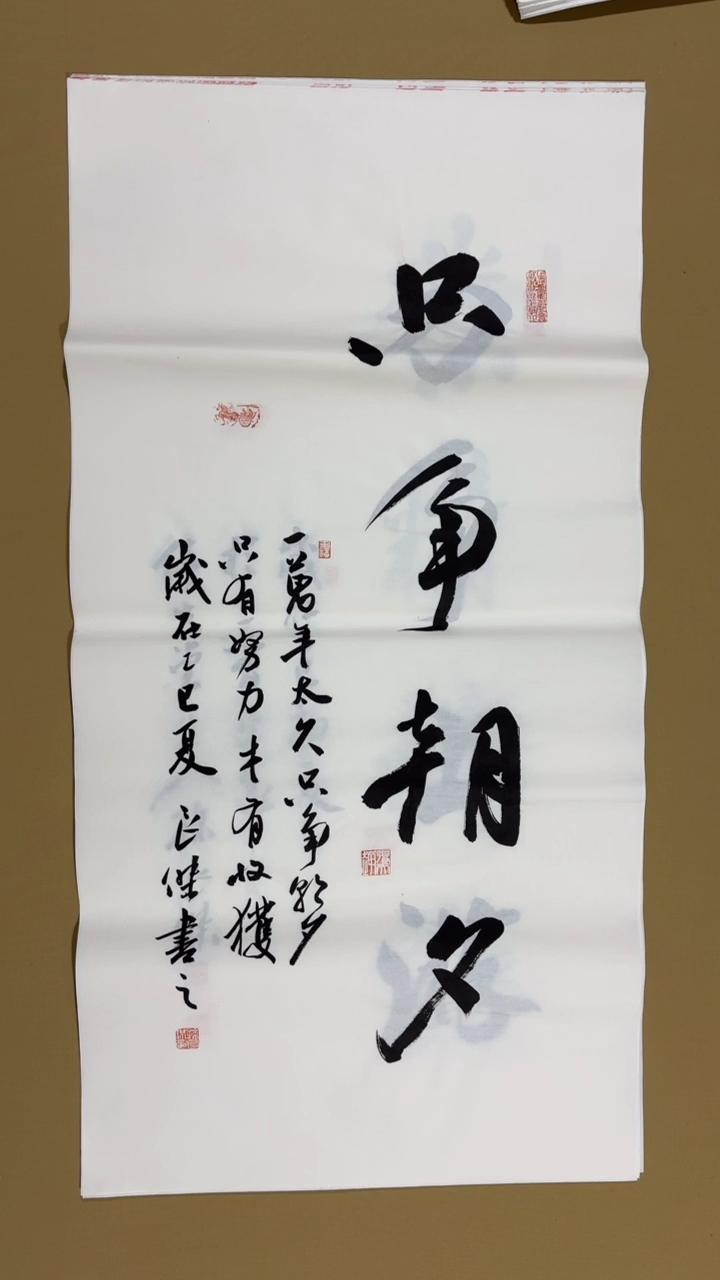 只争朝夕
一萬年太久只争朝夕
只有努力才有收獲
歲在乙巳夏 正傑書之